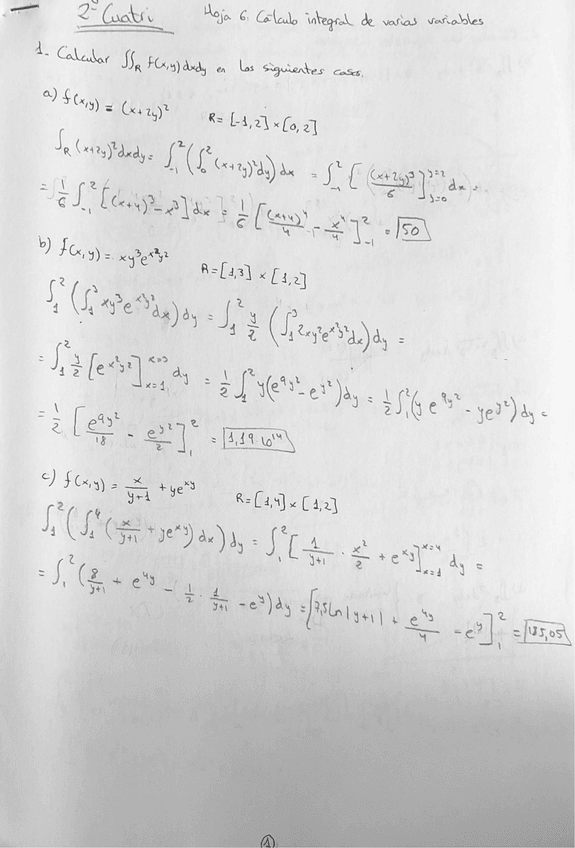 2º Cuatri
Hoja 6: Cálculo integral de varias variables
1- Calcular ∬_R f(x,y) dxdy en los siguientes casos.
a) f(x,y) = (x+2y)²   R = [-1,2] × [0,2]
∫_R (x+2y)² dxdy = ∫_{-1}^{2} (∫_0^2 (x+2y)² dy) dx = ∫_{-1}^{2} [(x+2y)³/6]_{y=0}^{y=2} dx =
= 1/6 ∫_{-1}^{2} [(x+4)³ - x³] dx = 1/6 [(x+4)⁴/4 - x⁴/4]_{-1}^{2} = 50
b) f(x,y) = xy³e^{x²y²}   R = [1,3] × [1,2]
∫_1^2 (∫_1^3 xy³e^{x²y²} dx) dy = ∫_1^2 y/2 (∫_1^3 2xy²e^{x²y²} dx) dy =
= ∫_1^2 y/2 [e^{x²y²}]_{x=1}^{x=3} dy = 1/2 ∫_1^2 y(e^{9y²} - e^{y²}) dy = 1/2 ∫_1^2 (y e^{9y²} - ye^{y²}) dy =
= 1/2 [e^{9y²}/18 - e^{y²}/2]_1^2 = 1,19·10¹⁴
c) f(x,y) = x/(y+1) + ye^{xy}   R = [1,4] × [1,2]
∫_1^2 (∫_1^4 (x/(y+1) + ye^{xy}) dx) dy = ∫_1^2 [1/(y+1) · x²/2 + e^{xy}]_{x=1}^{x=4} dy =
= ∫_1^2 (8/(y+1) + e^{4y} - 1/2 · 1/(y+1) - e^y) dy = [7,5 Ln|y+1| + e^{4y}/4 - e^y]_1^2 = 
1